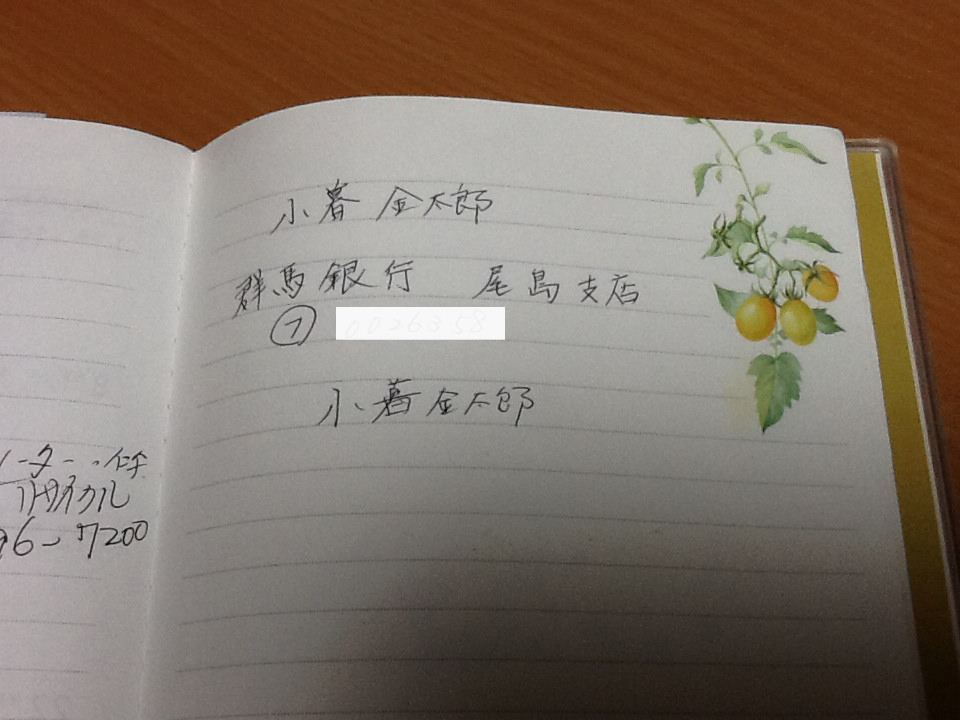 小暮 金太郎
群馬銀行 尾島支店
㋫
小暮金太郎
リサイクル
6-7200